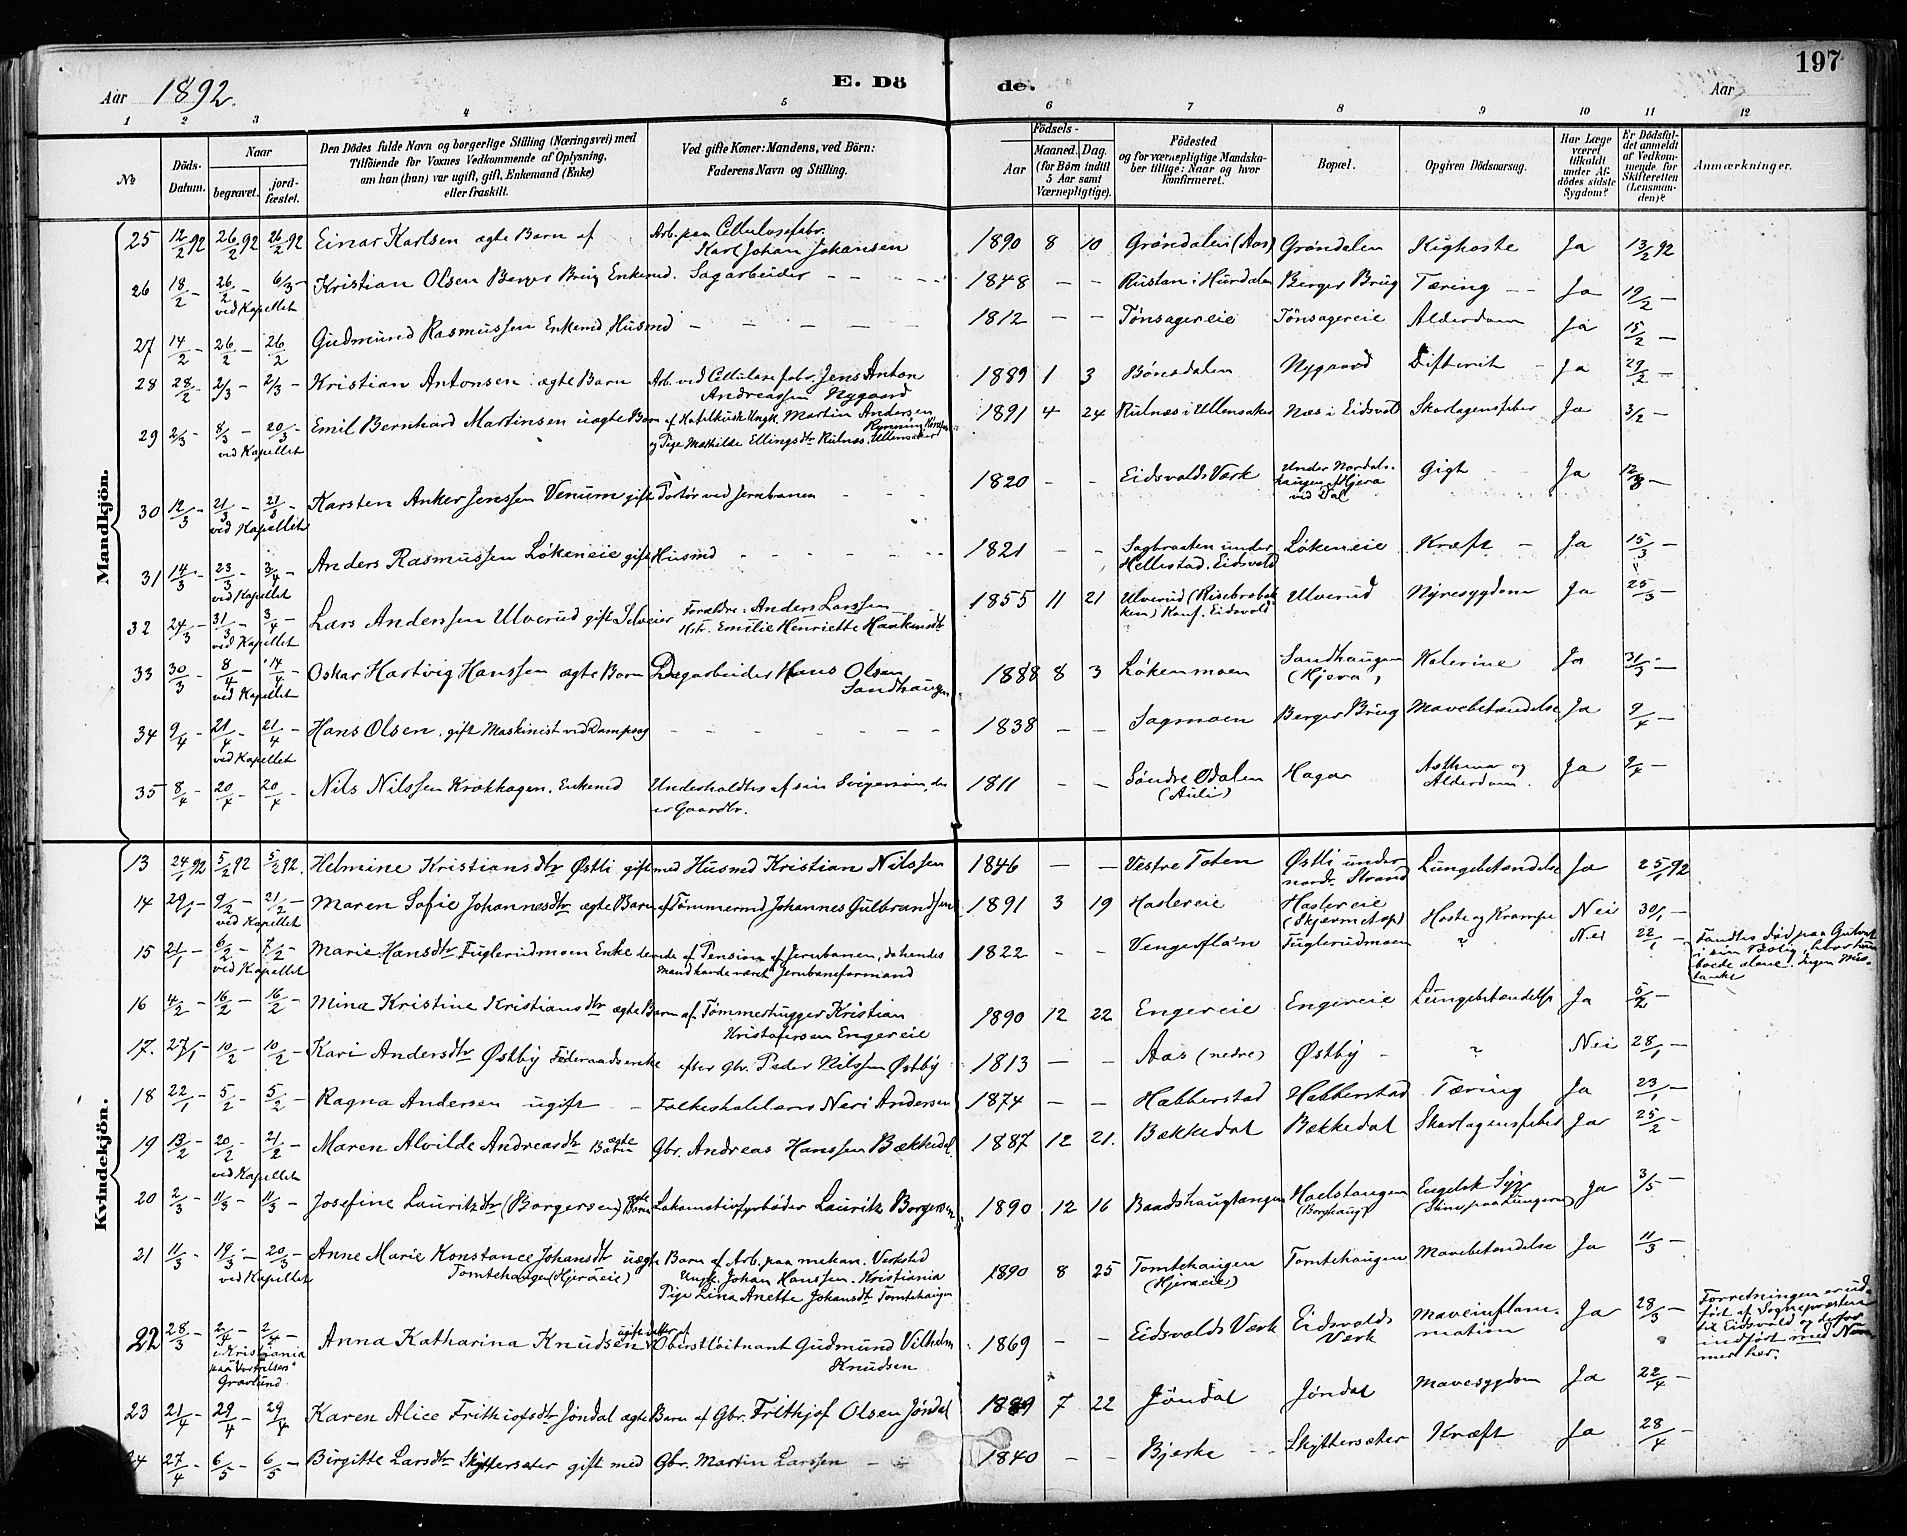 197
Aar 1892.
E. Döde.
Aar
1 2 3 4 5 6 7 8 9 10 11 12
№
Döds-Datum.
Naar
begravet.
jord-fæstet.
Den Dödes fulde Navn og borgerlige Stilling (Næringsvei) med
Tilföiende for Voxnes Vedkommende af Oplysning,
om han (hun) var ugift, gift, Enkemand (Enke)
eller fraskilt.
Ved gifte Koner: Mandens, ved Börn:
Faderens Navn og Stilling.
Födsels-
Aar
Maaned. Dag.
(for Börn indtil
5 Aar samt
Værnepligtige).
Födested
og for værnepligtige Mandska-
ber tillige: Naar og hvor
konfirmeret.
Bopæl.
Opgiven Dödsaarsag.
Har Læge
været
tilkaldt
under Af-
dödes sidste
Sygdom?
Er Dödsfal-
det anmeldt
af Vedkom-
mende for
Skifteretten
(Lensman-
den)?
Anmærkninger.
Mandkjön.
25 12/2 92 26/2 92 26/2 92 Einar Karlsen ægte Barn af Arb. paa Cellulosefabr. Karl Johan Johansen 1890 8 10 Grøndalen (Aas) Grøndalen Kighoste Ja 13/2 92
26 18/2 - 26/2 - 6/3 - ved Kapellet Kristian Olsen Berger Brug Enkemd. Sagarbeider - - 1848 - - Rustan i Hurdalen Berger Brug Tæring - - Ja 19/2 -
27 14/2 - 26/2 - 26/2 Gudmund Rasmussen Enkemd. Husmd - - - - - 1812 - - Tønsagereie Tønsagereie Alderdom Ja 15/2 -
28 28/2 - 2/3 - 2/3 - Kristian Antonsen ægte Barn Arb. ved Cellulosefabr. Jens Anton Andreassen Nygaard 1889 1 3 Bønsdalen Nygaard Difterit - Ja 29/2 -
29 2/3 - 8/3 - 20/3 - ved Kapellet Emil Bernhard Martinsen uægte Barn af Ungk. Martin Andersen og Pige Mathilde Ellingsdtr Rulnæs, Ullensaker 1891 4 24 Rulnæs i Ullensaker Næs i Eidsvold Skarlagensfeber Ja 3/2 -
30 12/3 - 21/3 - 21/3 - ved Kapellet Karsten Anker Jenssen Venum gift Portør ved Jernbanen - - 1820 - - Eidsvolds Værk Under Nordals-haugen, Hjera ved Dal Gigt - - Ja 12/3 -
31 14/3 - 23/3 - 3/4 - ved Kapellet Anders Rasmussen Løkeneie gift Husmd - - - - - 1821 - - Sagbraaten under Hellestad. Eidsvold Løkeneie Kræft - Ja 15/3 -
32 24/3 - 31/3 - 3/4 - ved Kapellet Lars Anderssen Ulverud gift Selveier Forældre: Anders Larssen Hstr. Emilie Henriette Haakensdtr 1855 11 21 Ulverud (Risebrobakken) Konf. Eidsvold Ulverud Nyresygdom Ja 25/3 -
33 30/3 - 8/4 - 14/4 - ved Kapellet Oskar Hartvig Hanssen ægte Barn Dagarbeider Hans Olsen Sandhaugen 1888 8 3 Løkenmoen Sandhaugen (Hjera) Katerine Ja 31/3 -
34 9/4 - 21/4 - 21/4 - ved Kapellet Hans Olsen, gift Maskinist ved Dampsag - - - - - 1838 - - Sagmoen Berger Brug Mavebetændelse Ja 9/4 -
35 8/4 - 20/4 - 20/4 - Nils Nilssen Krokhagen, Enkemd Underholdtes af sin Svigersøn, der er Gaardbr. 1811 - - Søndre Odalen (Auli) Hagar Asthma og Alderdom. Ja 9/4 -
Kvindekjön.
13 24/1 92 5/2 92 5/2 92. Helmine Kristiansdtr Østli gift med Husmd Kristian Nilssen 1846 - - Vestre Toten Østli under nordr. Strand Lungebetændelse Ja 25/1 92
14 29/1 - 9/2 - 21/2 - ved Kapellet Maren Sofie Johannesdtr ægte Barn af Tømmermd Johannes Gulbrandsen 1891 3 19 Haslereie Haslereie Hoste og Krampe Nei 30/1 -
15 21/1 - 6/2 - 7/2 - ved Kapellet Marie Hansdtr Fuglerudmoen Enke levede af Pension af Jernbanen, da hendes Mand havde været Jernbaneformand 1822 - - Fuglerudmoen " Nei 22/1 - Fandtes død paa Gulvet i sin Bolig, hvor hun boede alene. Ingen Mistanke
16 4/2 - 16/2 - 16/2 - Mina Kristine Kristiansdtr ægte Barn af Tømmerhugger Kristian Kristofersen Engereie 1890 12 22 Engereie Engereie Lungebetændelse Ja 5/2 -
17. 27/1 - 10/2 - 10/2 - Kari Andersdtr Østby Føderaadsenke efter Gbr. Peder Nilssen Østby 1813 - - Aas (nedre) Østby - " Nei 28/1 -
18 22/1 - 5/2 - 5/2 - Ragna Andersen ugift - Folkeskolelærer Neri Andersen 1874 - - Habberstad Habberstad Tæring Ja 23/1 -
19 13/2 - 20/2 - 21/2 - ved Kapellet Maren Alvilde Andreasdtr ægte Barn Gbr. Andreas Hanssen Bækkedal 1887 12 21. Bækkedal Bækkedal Skarlagensfeber Ja 25/2 -
20 2/3 - 11/3 - 11/3 - Josefine Lauritzdtr (Borgersen) ægte Barn Lokomotivfyrbøder Lauritz Borgersen 1890 12 16 Baadshaugtangen Engelsk Syge (Slim paa Lungerne) Ja 3/5 -
21 11/3 - 19/3 - 20/3 - ved Kapellet Anne Marie Konstance Johansdtr uægte Tomtehaugen (Hjeraeie) Barn af Arb. paa mekan. Verksted Ungk. Johan Hanssen. Kristiania Pige Lina Anette Johansdtr Tomtehaugen 1890 8 25 Tomtehaugen (Hjeraeie) Tomtehaugen Mavebetændelse Ja 11/3 -
22 28/3 - 2/4 - 2/4 - i Kristiania paa Vor Frelsers Gravlund Anna Katharina Knudsen ugift datter af Oberstløitnant Gudmund Vilhelm Knudsen 1869 - - Eidsvolds Værk Eidsvolds Værk Maveinflammation Ja 28/3 - Forretningen er udført af Sognepræsten til Eidsvold og derfor indført med Nummer her.
23 21/4 - 29/4 - 29/4 Karen Alice Frithjofsdtr Jøndal ægte Barn af Gbr. Frithjof Olsen Jøndal 1889 7 22 Jøndal Jøndal Mavesygdom Ja 22/4 -
24 27/4 - 6/5 - 6/5 - Birgitte Larsdtr Skyttersæter gift med Gbr. Martin Larssen - 1840 - - Bjerke - - Skyttersæter Kræft Ja 28/4 -